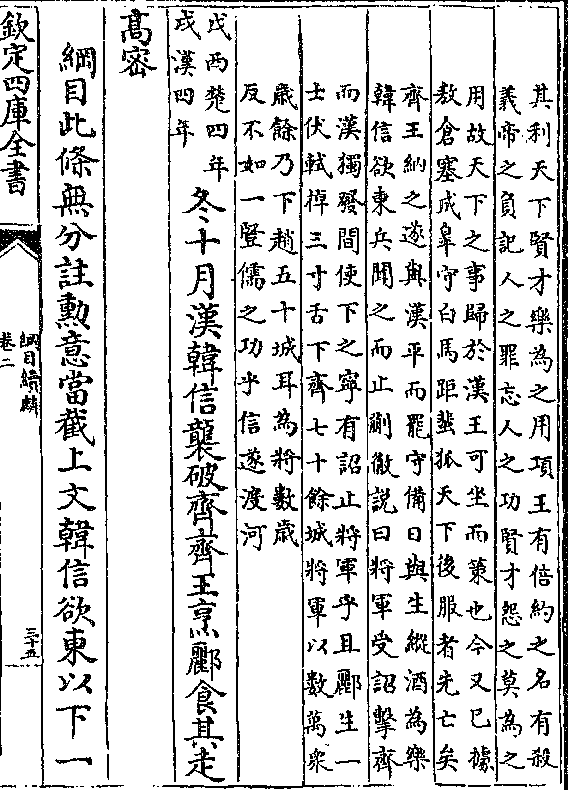 其利天下賢才樂為之用項王有倍約之名有殺
義帝之負記人之罪忘人之功賢才怨之莫為之
用故天下之事歸於漢王可坐而策也今又已據
敖倉塞成皋守白馬距蜚狐天下後服者先亡矣
齊王納之遂與漢平而罷守備日與生縱酒為樂
韓信欲東兵聞之而止蒯徹說曰將軍受詔擊齊
而漢獨發間使下之寧有詔止將軍乎且酈生一
士伏軾掉三寸舌下齊七十餘城將軍以數萬衆
歲餘乃下趙五十城耳為將數歳
反不如一豎儒之功乎信遂渡河
戊西楚四年
戌漢四年
冬十月漢韓信襲破齊齊王烹酈食其走
髙密
綱目此條無分註勲意當截上文韓信欲東以下一
欽定四庫全書
綱目續麟
卷二
三十五